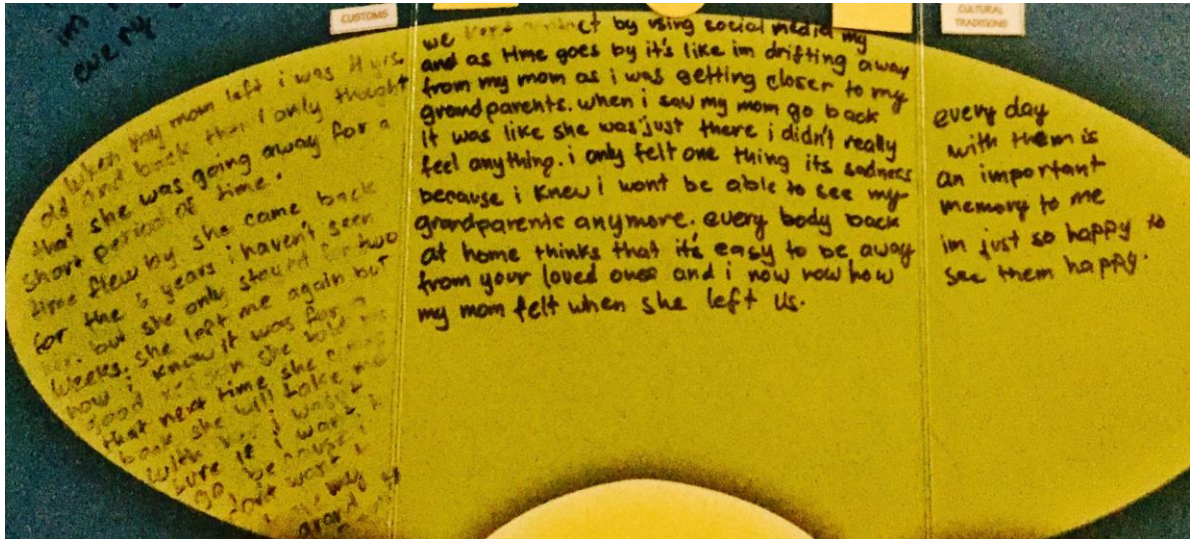 im
every
CUSTOMS
CULTURAL
TRADITIONS
when my mom left i was 4 yrs.
old and back then i only thought
that she was going away for a
short period of time.
time flew by she came back
for the 6 years i haven't seen
her. but she only stayed for two
weeks. she left me again but
now i know it was for a
good reason she told me
that next time she comes
back she will take me
with her i wasn't
sure if i want to
go because i
don't want
my
grand
we kept contact by using social media my
and as time goes by it's like im drifting away
from my mom as i was getting closer to my
grandparents. when i saw my mom go back
it was like she was just there i didn't really
feel anything. i only felt one thing its sadness
because i knew i wont be able to see my
grandparents anymore. every body back
at home thinks that it's easy to be away
from your loved ones and i now now how
my mom felt when she left us.
every day
with them is
an important
memory to me
im just so happy to
see them happy.